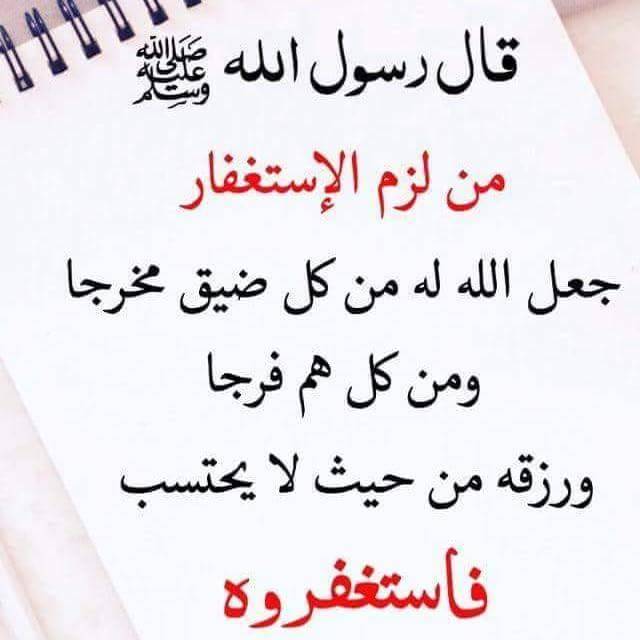 قال رسول الله ﷺ
من لزم الإستغفار
جعل الله له من كل ضيق مخرجا
ومن كل هم فرجا
ورزقه من حيث لا يحتسب
فاستغفروه